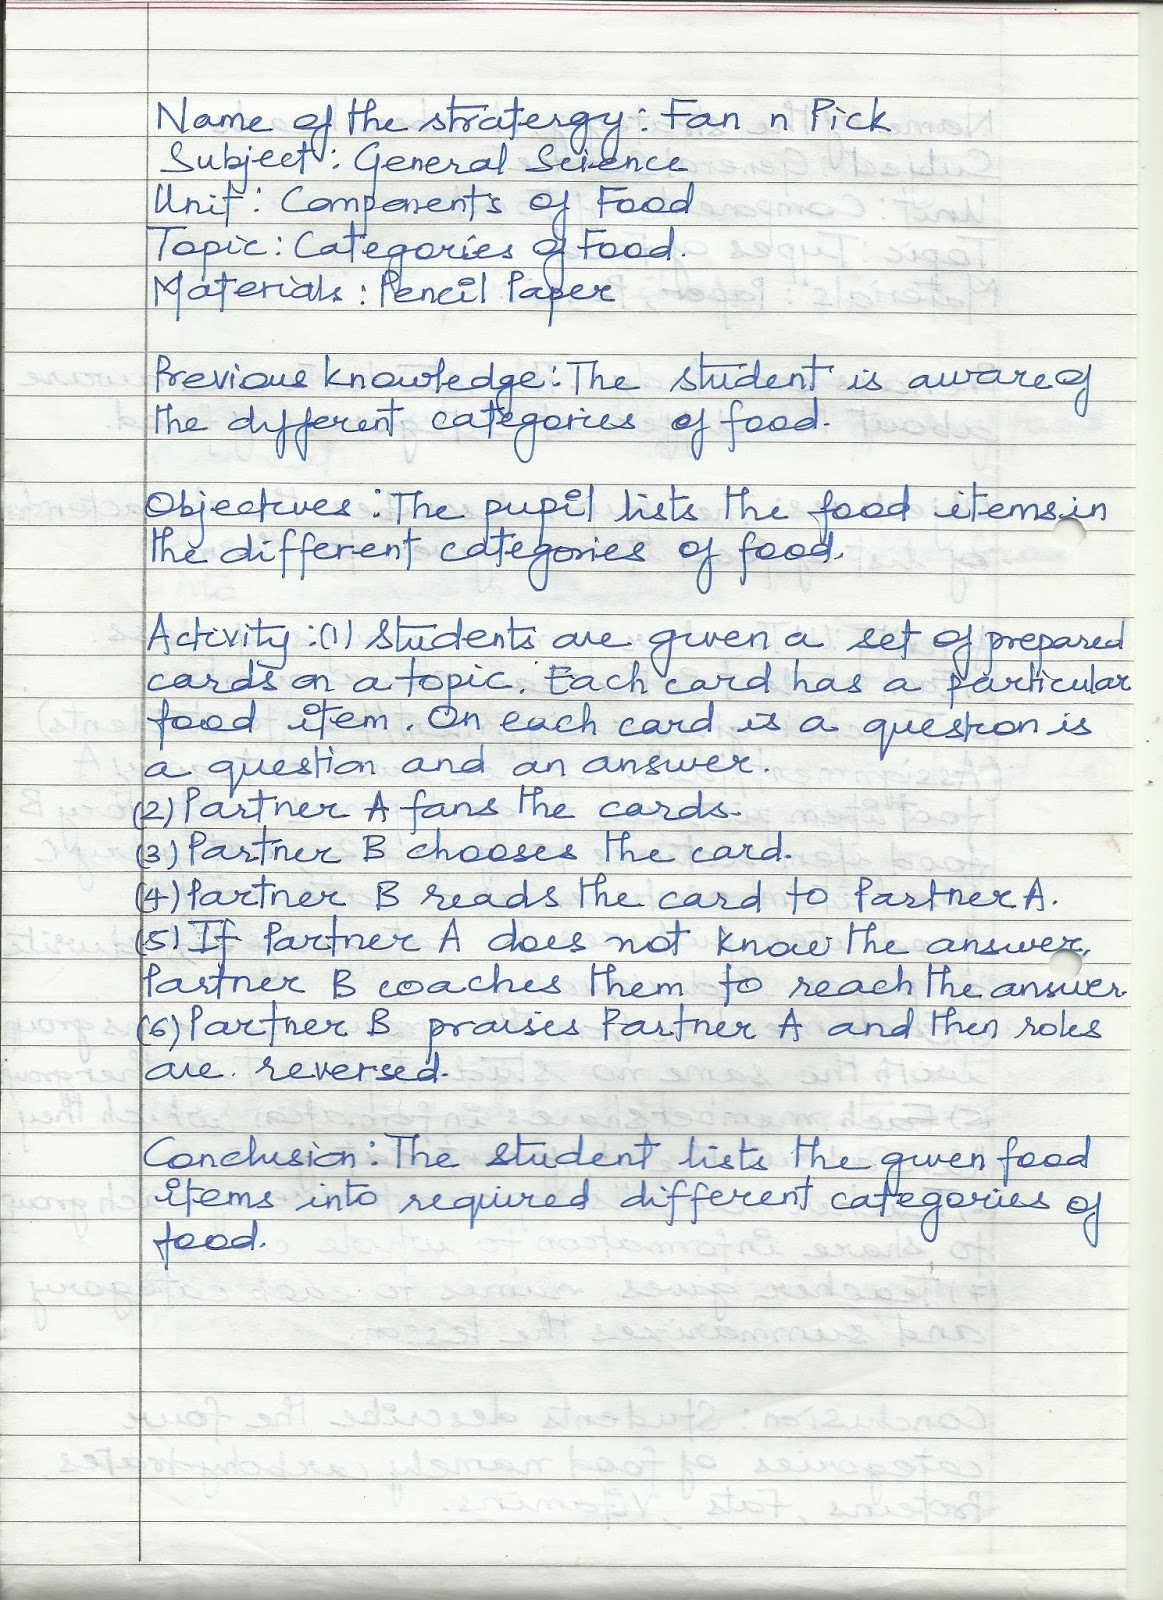 Name of the stratergy: Fan n Pick
Subject: General Science
Unit: Components of Food
Topic: Categories of Food.
Materials: Pencil Paper
Previous knowledge: The student is aware of
the different categories of food.
Objectives: The pupil lists the food items in
the different categories of food.
Activity: (1) Students are given a set of prepared
cards on a topic. Each card has a particular
food item. On each card is a question is
a question and an answer.
(2) Partner A fans the cards.
(3) Partner B chooses the card.
(4) Partner B reads the card to Partner A.
(5) If Partner A does not know the answer,
Partner B coaches them to reach the answer
(6) Partner B praises Partner A and then roles
are reversed.
Conclusion: The student lists the given food
items into required different categories of
food.